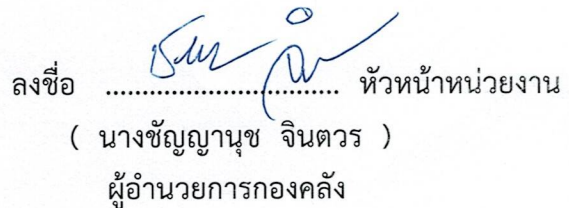 ลงชื่อ .................................. หัวหน้าหน่วยงาน
( นางชัญญานุช จินตวร )
ผู้อำนวยการกองคลัง